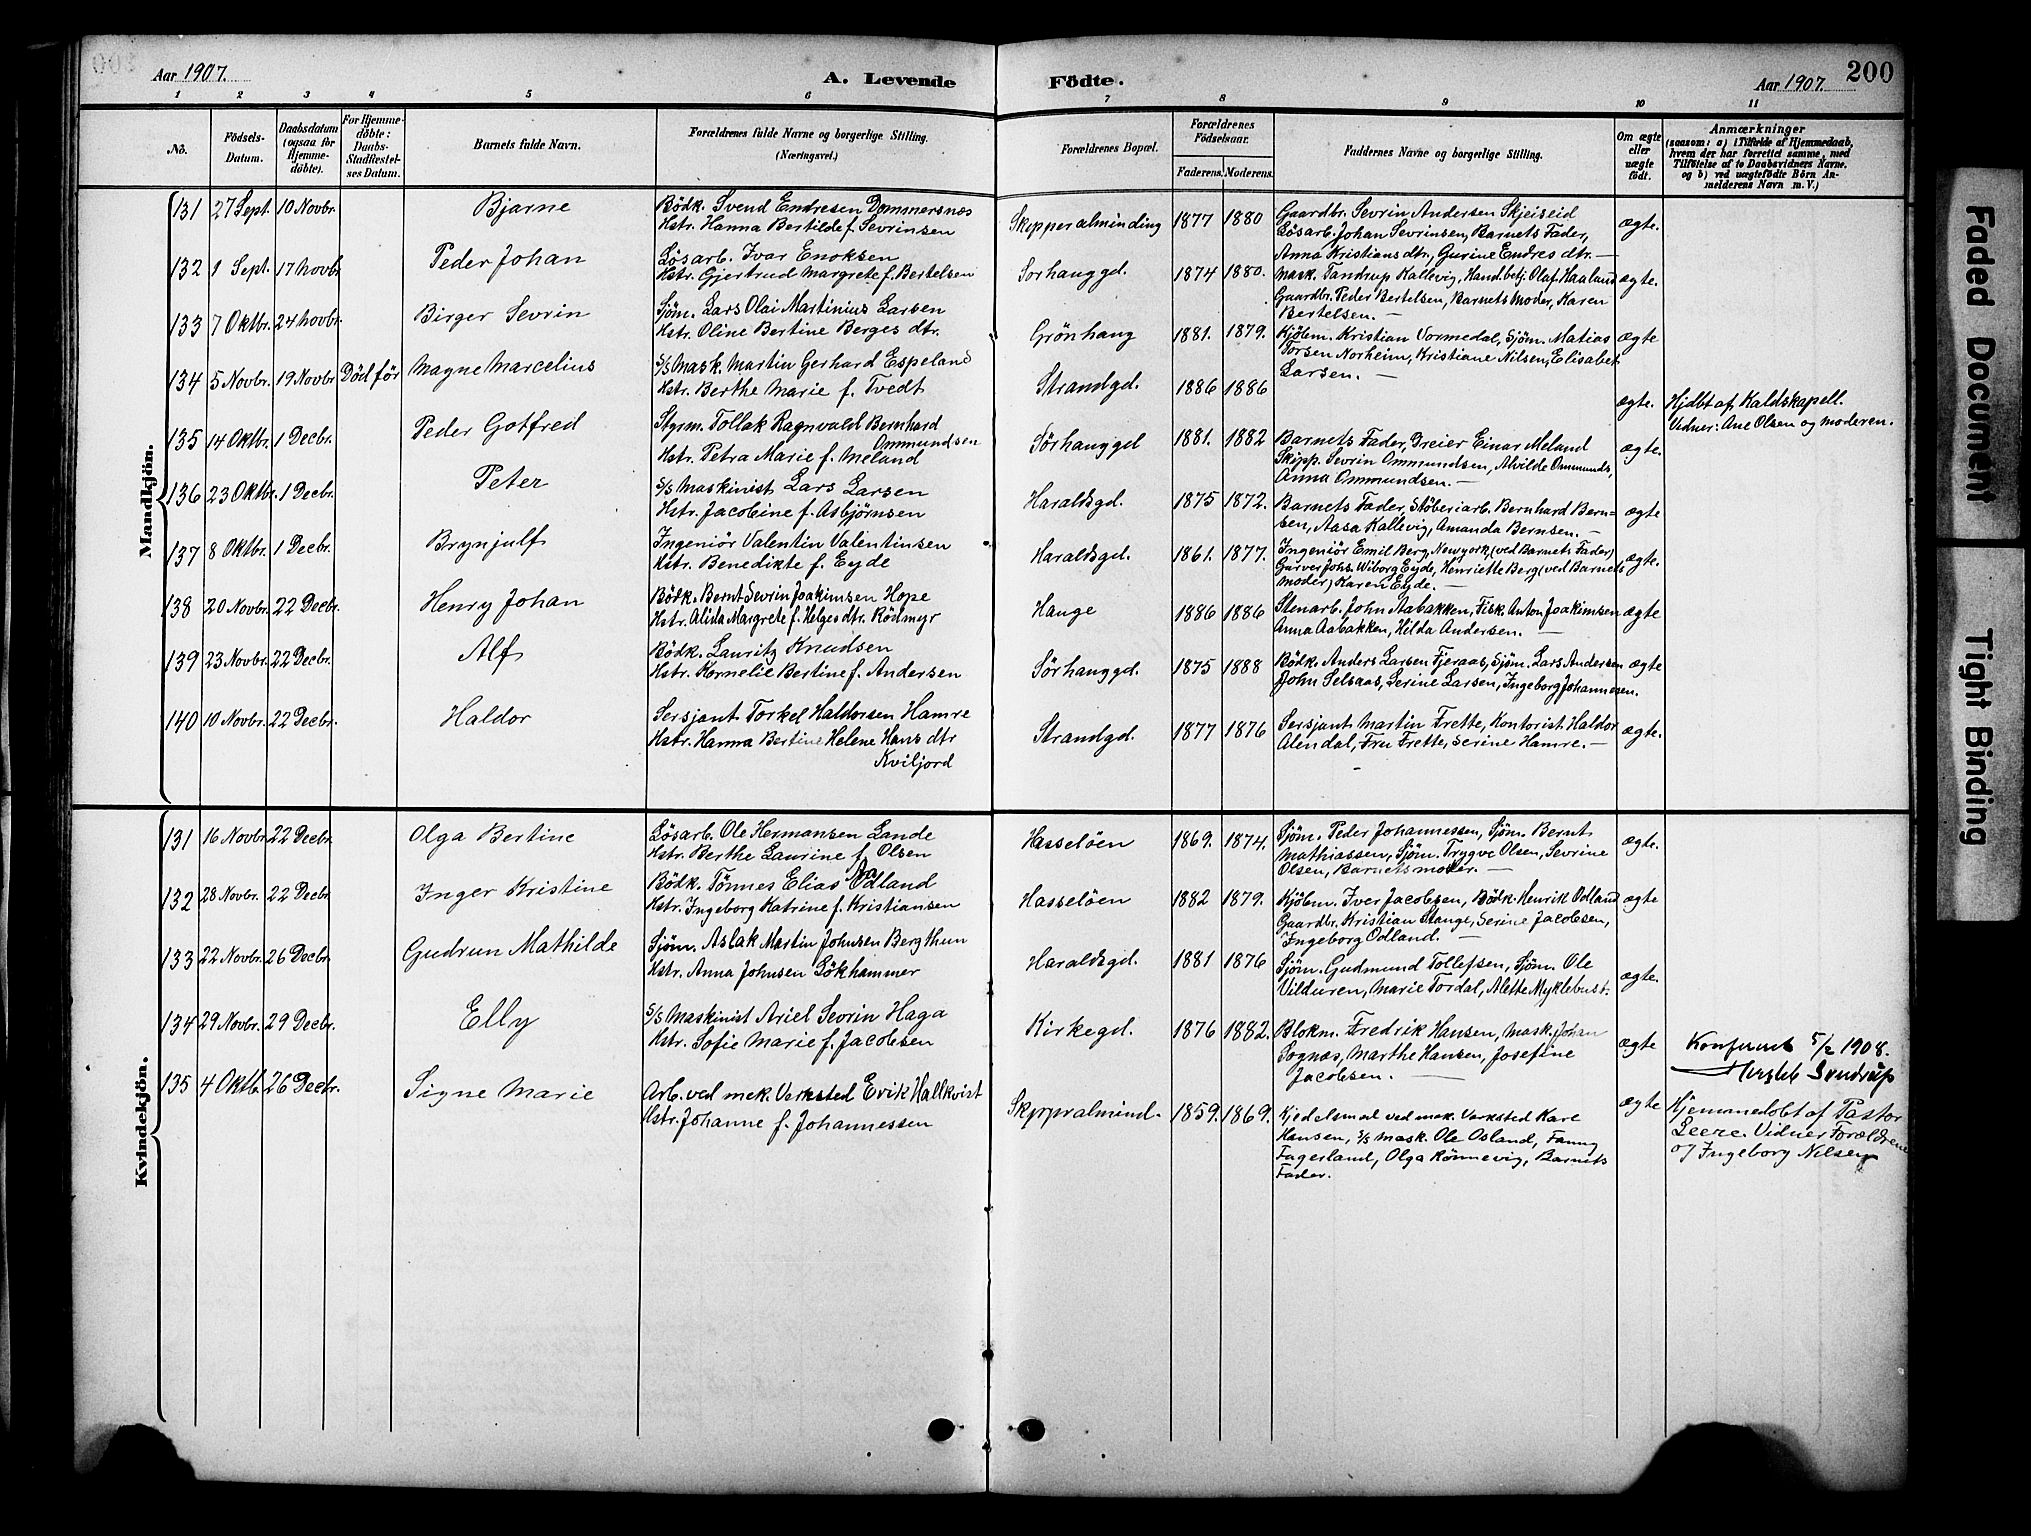 Aar 1907.
A. Levende
Födte.
Aar 1907.
200
1 2 3 4 5 6 7 8 9 10 11
No.
Födsels-Datum.
Daabsdatum (ogsaa for Hjemme-döbte).
For Hjemme-döbte: Daabs-Stadfæstel-ses Datum.
Barnets fulde Navn.
Forældrenes fulde Navne og borgerlige Stilling. (Næringsvei.)
Forældrenes Bopæl.
Forældrenes Födselsaar.
Faderens. Moderens.
Faddernes Navne og borgerlige Stilling.
Om ægte eller uægte födt.
Anmærkninger
(saasom: a) i Tilfælde af Hjemmedaab, hvem der har forrettet samme, med Tilföielse af to Daabsvidners Navne. og b) ved uægtefödte Börn An-melderens Navn m. V.)
Mandkjön.
131 27 Sept. 10 Novbr. Bjarne
Bödk. Svend Endresen Dommersnes
Hstr. Hanna Bertilde f. Sevrinsen
Skipperalminding 1877 1880
Gaardbr. Sevrin Andersen Skjeiseid
Lösarb. Johan Sevrinsen, Barnets Fader,
Anna Kristians dtr, Gurine Endres dtr.—
ægte.
132 1 Sept. 17 Novbr. Peder Johan
Lösarb. Ivar Enoksen
Hstr. Gjertrud Margrete f. Bertelsen
Sörhauggd. 1874 1880.
Mask. Tandrup Kallevig, Handbetj. Olaf Haaland
Gaardbr. Peder Bertelsen, Barnets Moder, Karen
Bertelsen.—
ægte.
133 7 Oktbr. 24 Novbr. Birger Sevrin
Sjöm. Lars Olai Martinius Larsen
Hstr. Oline Bertine Berges dtr.
Grönhaug 1881. 1879.
Kjöbm. Kristian Vormedal, Sjöm. Matias
Torsen Norheim, Kristiane Nilsen, Elisabet
Larsen.—
ægte
134 5 Novbr. 19 Novbr Död för Magne Marcelius
S/S Mask. Martin Gerhard Espeland
Hstr. Berthe Marie f. Tvedt
Strandgd. 1886 1886
ægte.
Hjdbt af Kaldskapell.
Vidner: Ane Olsen og moderen.
135 14 Oktbr. 1 Decbr. Peder Gotfred
Styrm. Tollak Ragnvald Bernhard
Ommundsen
Hstr. Petra Marie f. Meland
Sörhauggd 1881. 1882
Barnets Fader, Dreier Einar Meland
Skipp. Sevrin Ommundsen, Alvilde Ommunds,
Anna Ommundsen.—
ægte.
136 23 Oktbr. 1 Decbr. Peter
S/S Maskinist Lars Larsen
Hstr. Jacobine f. Asbjörnsen
Haraldsgd. 1875 1872.
Barnets Fader, Stöberiarb. Bernhard Bern-
sen, Aasa Kallevig, Amanda Bernsen.—
ægte
137 8 Oktbr. 1 Decbr. Brynjulf
Ingeniör Valentin Valentinsen
Hstr. Benedikte f. Eyde
Haraldsgd. 1861. 1877.
Ingeniör Emil Berg, Newyork, (ved Barnets Fader)
Garver Johs. Wiborg Eyde, Henriette Berg (ved Barnets
Moder) Karen Eyde.—
ægte.
138 20 Novbr. 22 Decbr. Henry Johan
Bödk. Bernt Sevrin Joakimsen Hope
Hstr. Alida Margrete f. Helges dtr. Rödmyr
Hauge 1886 1886
Stenarb. John Aabakken, Fisk. Anton Joakimsen
Anna Aabakken, Hilda Andersen.—
ægte
139 23 Novbr. 22 Decbr. Alf
Bödk. Lauritz Knudsen
Hstr. Kornelie Bertine f. Andersen
Sörhauggd. 1875 1888
Bödk. Anders Larsen Fjeraas, Sjöm. Lars Andersen
John Selsaas, Serine Larsen, Ingeborg Johannesen.
ægte
140 10 Novbr. 22 Decbr. Haldor
Sersjant Torkel Haldorsen Hamre
Hstr. Hanna Bertine Helene Hans dtr
Kviljord
Strandgd. 1877 1876
Sersjant Martin Frette, Kontorist Haldor
Alendal, Fru Frette, Serine Hamre.—
ægte.
Kvindekjön.
131 16 Novbr. 22 Decbr. Olga Bertine
Lösarb. Ole Hermansen Lande
Hstr. Berthe Laurine f. Olsen
Hasselöen 1869. 1874.
Sjöm. Peder Johannessen, Sjöm. Bernt
Mathiassen, Sjöm. Trygve Olsen, Sevrine
Olsen, Barnets moder.—
ægte.
132 28 Novbr. 22 Decbr. Inger Kristine
Bödk. Tönnes Elias Odland
Hstr. Ingeborg Katrine f. Kristiansen
Hasselöen 1882 1879.
Kjöbm. Iver Jacobsen, Bödk. Henrik Odland
Gaardbr. Kristian Stange, Serine Jacobsen,
Ingeborg Odland.—
ægte
133 22 Novbr. 26 Decbr. Gudrun Mathilde
Sjöm. Aslak Martin Johnsen Bergthun
Hstr. Anna Johnsen Lökhammer
Haraldsgd. 1881 1876
Sjöm. Gudmund Tollefsen, Sjöm. Ole
Vilduren, Marie Tordal, Alette Myklebust.
ægte.
134 29 Novbr. 29 Decbr. Elly
S/S Maskinist Ariel Sevrin Haga
Hstr. Sofie Marie f. Jacobsen
Kirkegd. 1876 1882.
Blokm. Fredrik Hansen, Mask. Johan
Sognæs, Marthe Hansen, Josefine
Jacobsen.—
ægte
Konfereret 5/2 1908.
135 4 Oktb. 26 Decbr. Signe Marie
Arb. ved mek. Verksted Erik Hallkvist
Hstr. Johanne f. Johannessen
Skipperalmind. 1859. 1869.
Kjedelsmed ved mek. Verksted Kare
Hansen, S/S mask. Ole Osland, Fanny
Fagerland, Olga Rönnevig, Barnets
Fader.
ægte
Hjemmedöbt af Pastor
Vidner Forældrene
og Ingeborg Nilsen
Faded Document
Tight Binding